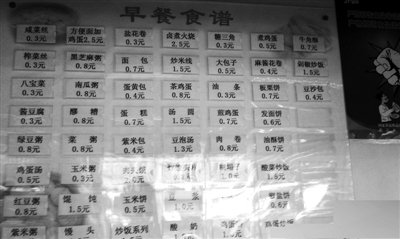 早餐食谱
咸菜丝 方便面加 盐花卷 卤煮火烧 糖三角 煮鸡蛋 牛角酥
0.3元 鸡蛋2.5元 0.3元 2.5元 0.3元 0.7元 0.7元
榨菜丝 黑芝麻粥 面包 炒米线 大包子 麻酱花卷
0.3元 0.8元 0.7元 1.5元 0.7元 0.4元 1.5元
八宝菜 南瓜粥 蛋黄包 茶鸡蛋 油条 板栗饼 豆沙包
0.3元 0.8元 0.4元 0.8元 0.7元 0.4元
酱豆腐 醪糟 蛋糕 汤圆 煎鸡蛋 发面饼
0.2元 0.8元 0.7元 1.5元 0.7元 0.6元
绿豆粥 菜粥 紫米包 豆泡汤 肉卷 油酥饼
0.8元 0.8元 0.4元 1.3元 0.8元 0.7元
鸡蛋汤 玉米粥 酸菜炒饭
0.5元 0.3元 2.0元 1.5元
红豆粥 馄饨 玉米饼 豆浆
0.8元 1.5元 0.5元 1.0元
紫米粥 馒头 炒饭系列 酸奶 鸡蛋